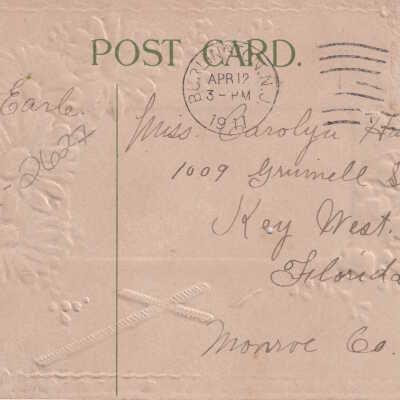 POST CARD.
BURLINGTON, N.J.
APR 12
3-PM
1911
Earle.
2627
Miss. Carolyn
1009 Grinnell S
Key West.
Florida
Monroe Co.